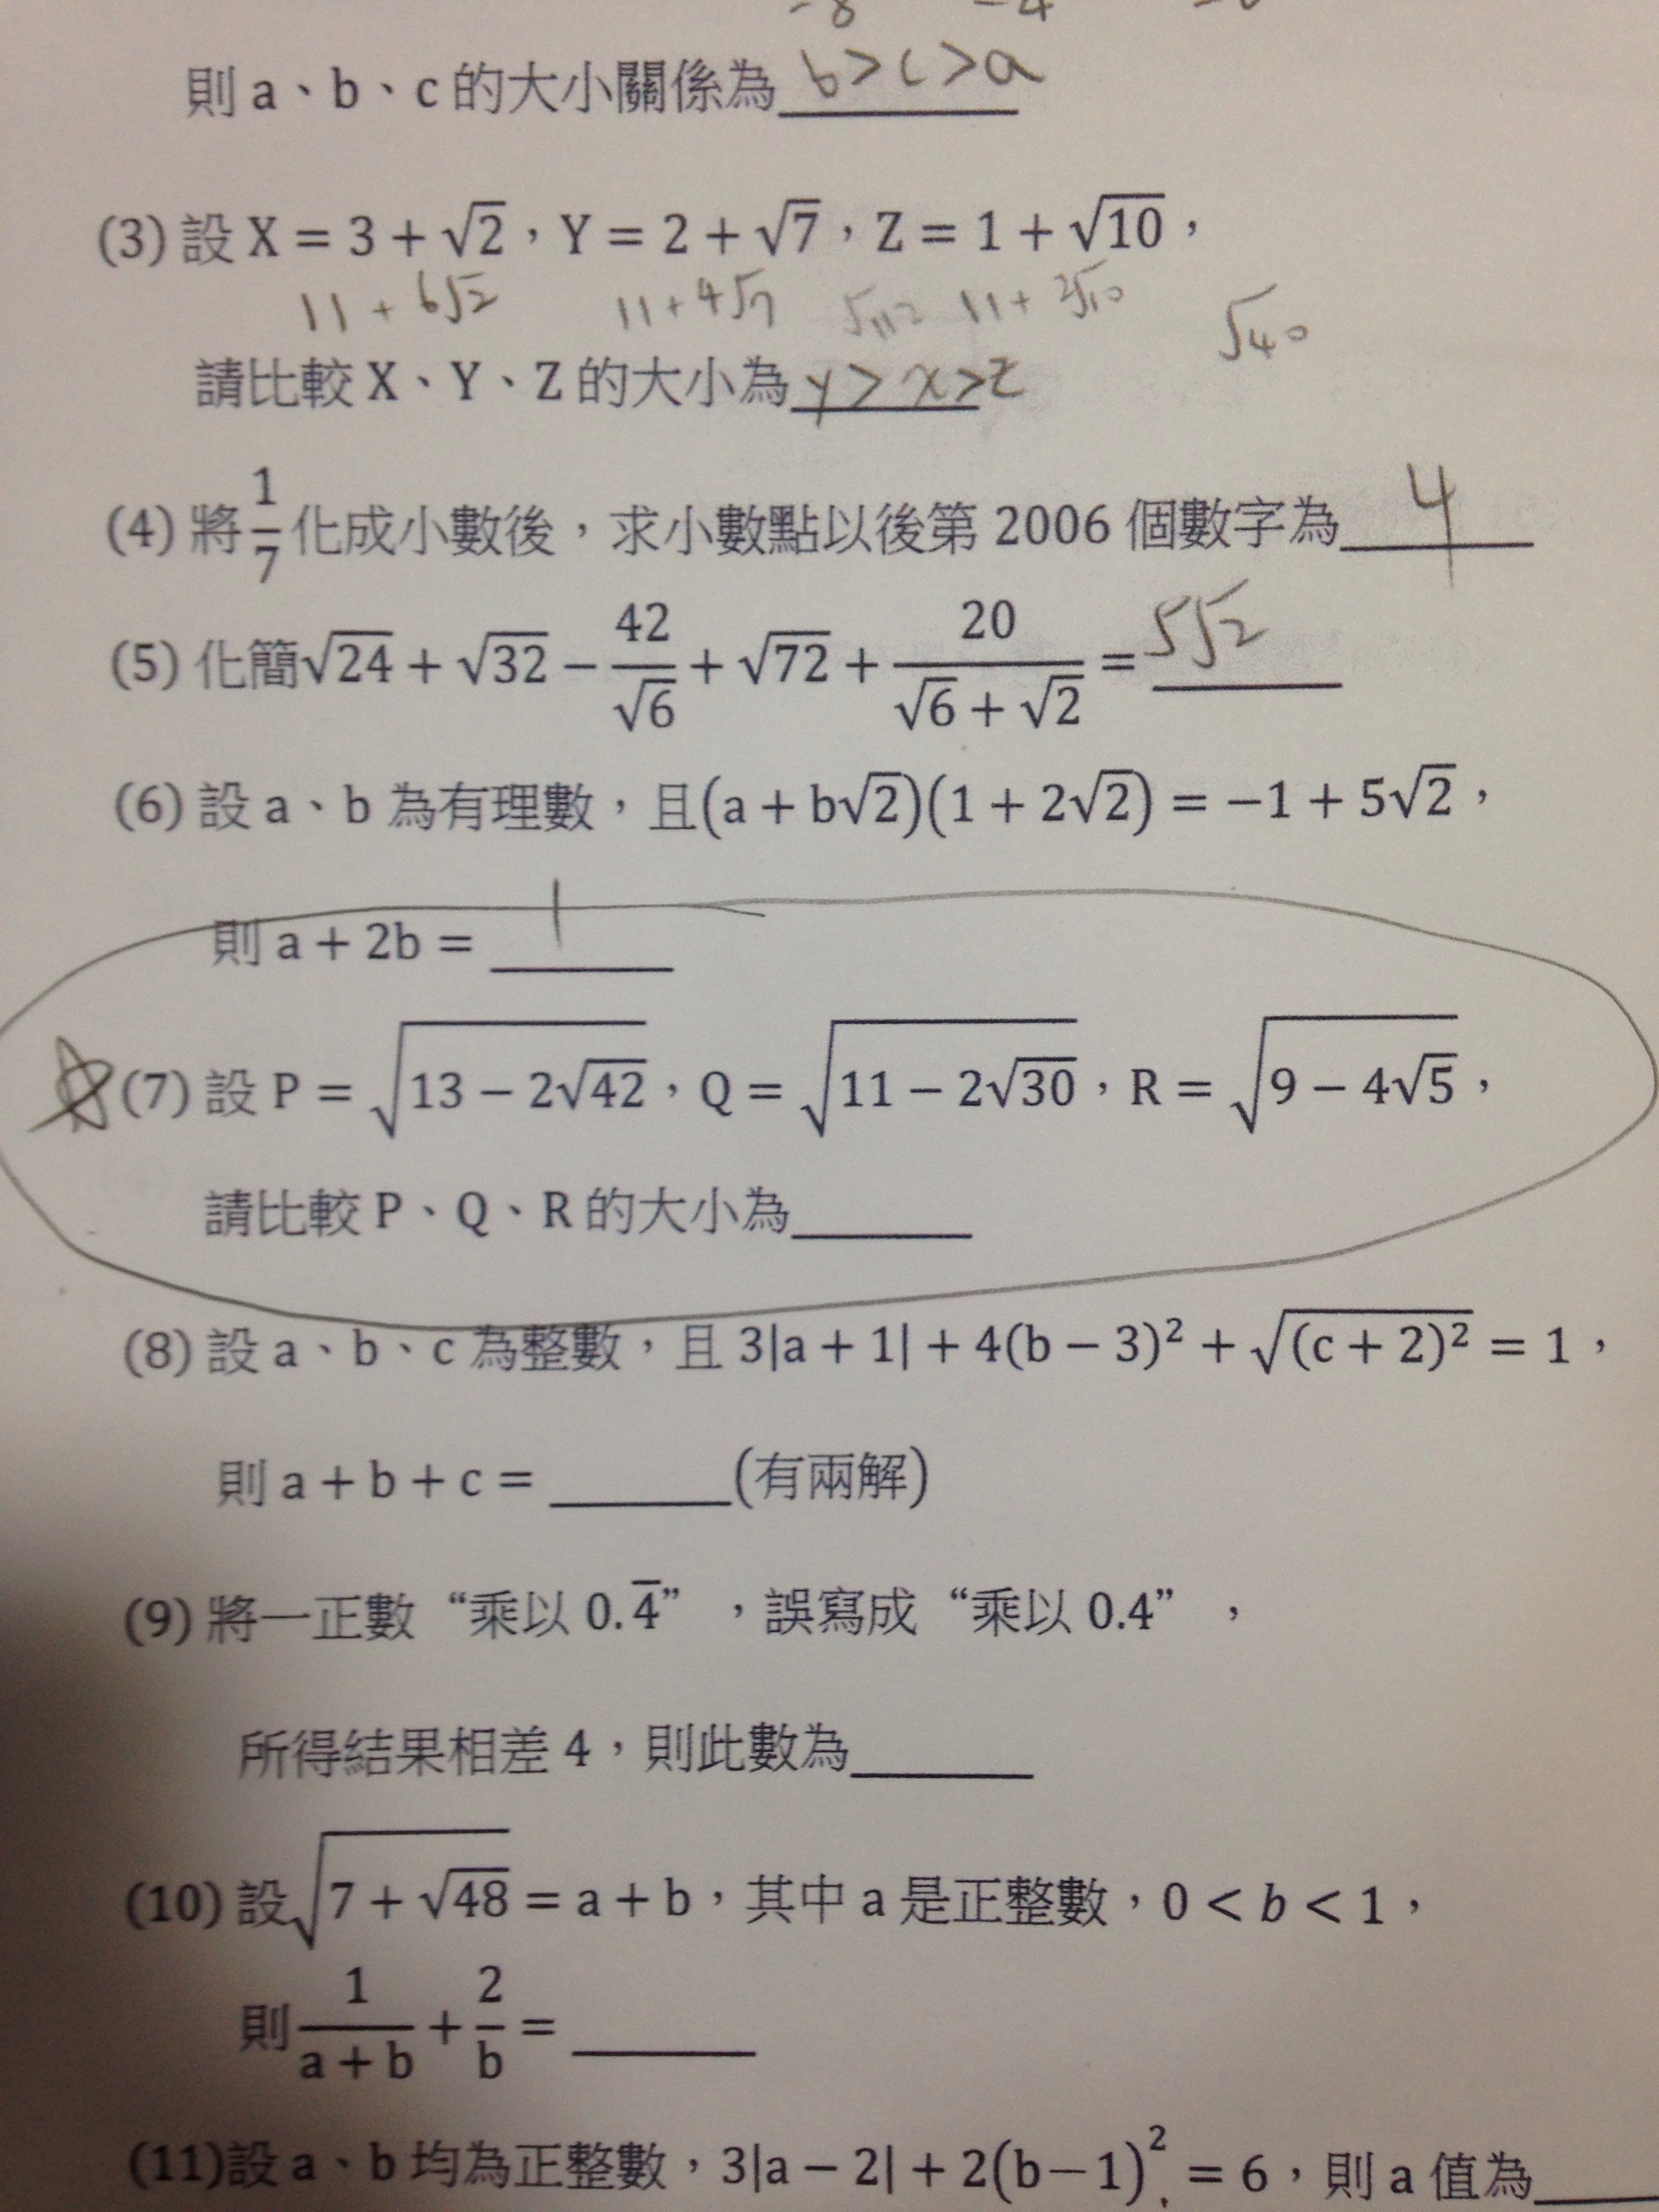 則 a、b、c 的大小關係為 b>c>a
(3) 設 X = 3 + √2，Y = 2 + √7，Z = 1 + √10，
11 + 6√2 11 + 4√7 √112 11 + 2√10 √40
請比較 X、Y、Z 的大小為 y > x > z
(4) 將 1/7 化成小數後，求小數點以後第 2006 個數字為 4
(5) 化簡√24 + √32 − 42/√6 + √72 + 20/(√6 + √2) = 5√2
(6) 設 a、b 為有理數，且(a + b√2)(1 + 2√2) = −1 + 5√2，
則 a + 2b = 1
(7) 設 P = √(13 − 2√42)，Q = √(11 − 2√30)，R = √(9 − 4√5)，
請比較 P、Q、R 的大小為______
(8) 設 a、b、c 為整數，且 3|a + 1| + 4(b − 3)² + √((c + 2)²) = 1，
則 a + b + c = ______(有兩解)
(9) 將一正數“乘以 0.4̅”，誤寫成“乘以 0.4”，
所得結果相差 4，則此數為______
(10) 設√(7 + √48) = a + b，其中 a 是正整數，0 < b < 1，
則 1/(a + b) + 2/b = ______
(11)設 a、b 均為正整數，3|a − 2| + 2(b−1)² = 6，則 a 值為____